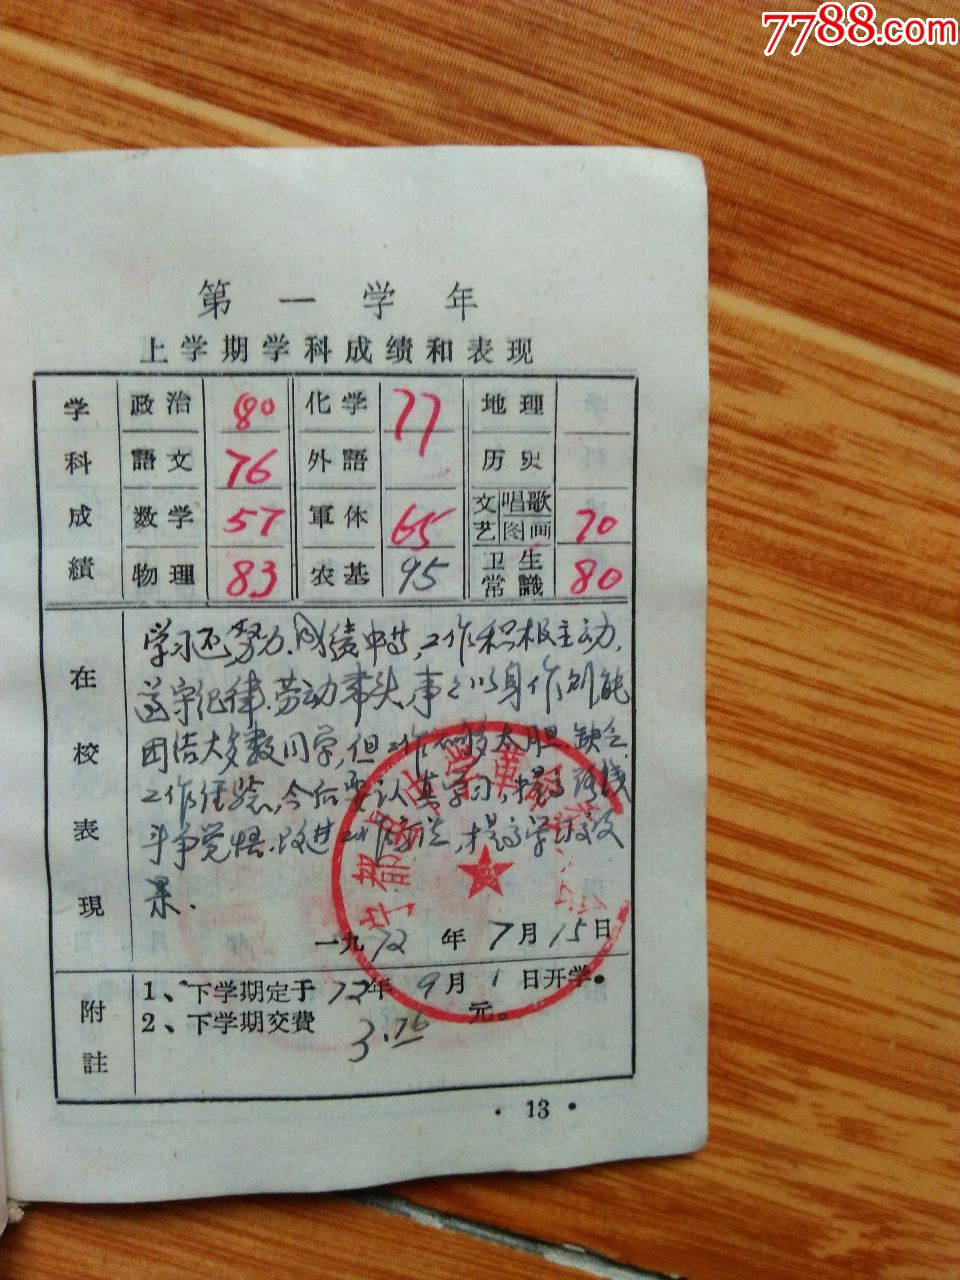 7788.com
第一学年
上学期学科成绩和表现
学科成績
政治 80 化学 77 地理
語文 76 外語 历史
数学 57 軍体 65 文艺 唱歌 图画 70
物理 83 农基 95 卫生常識 80
在校表現
学习还努力、成绩中等,工作积极主动,
遵守纪律、劳动带头,事事以身作则能
团结大多数同学,但工作不够大胆、缺乏
工作经验,今后要认真学习,提高路线
斗争觉悟、改进工作方法,提高学校效
果.
一九72年7月15日
附註
1、下学期定于72年9月1日开学。
2、下学期交費 3.76 元。
·13·